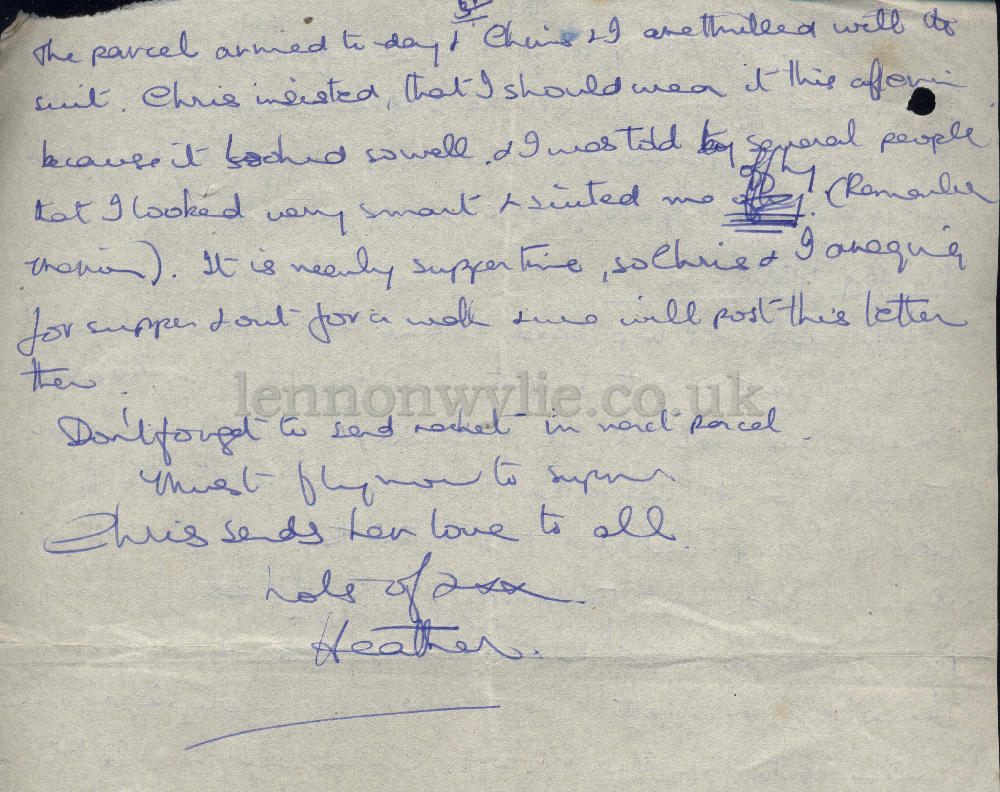 The parcel arrived to-day & Chris & I are thrilled with the
suit. Chris insisted, that I should wear it this
because it looked so well. & I was told by several people
that I looked very smart & suited me (Remember
). It is nearly supper time, so Chris & I are going
for supper & out for a walk & will post this letter
then.
lennonwylie.co.uk
Don't forget to send racket in next parcel.
Must fly now to supper.
Chris sends her love to all.
Lots of xxx
Heather.